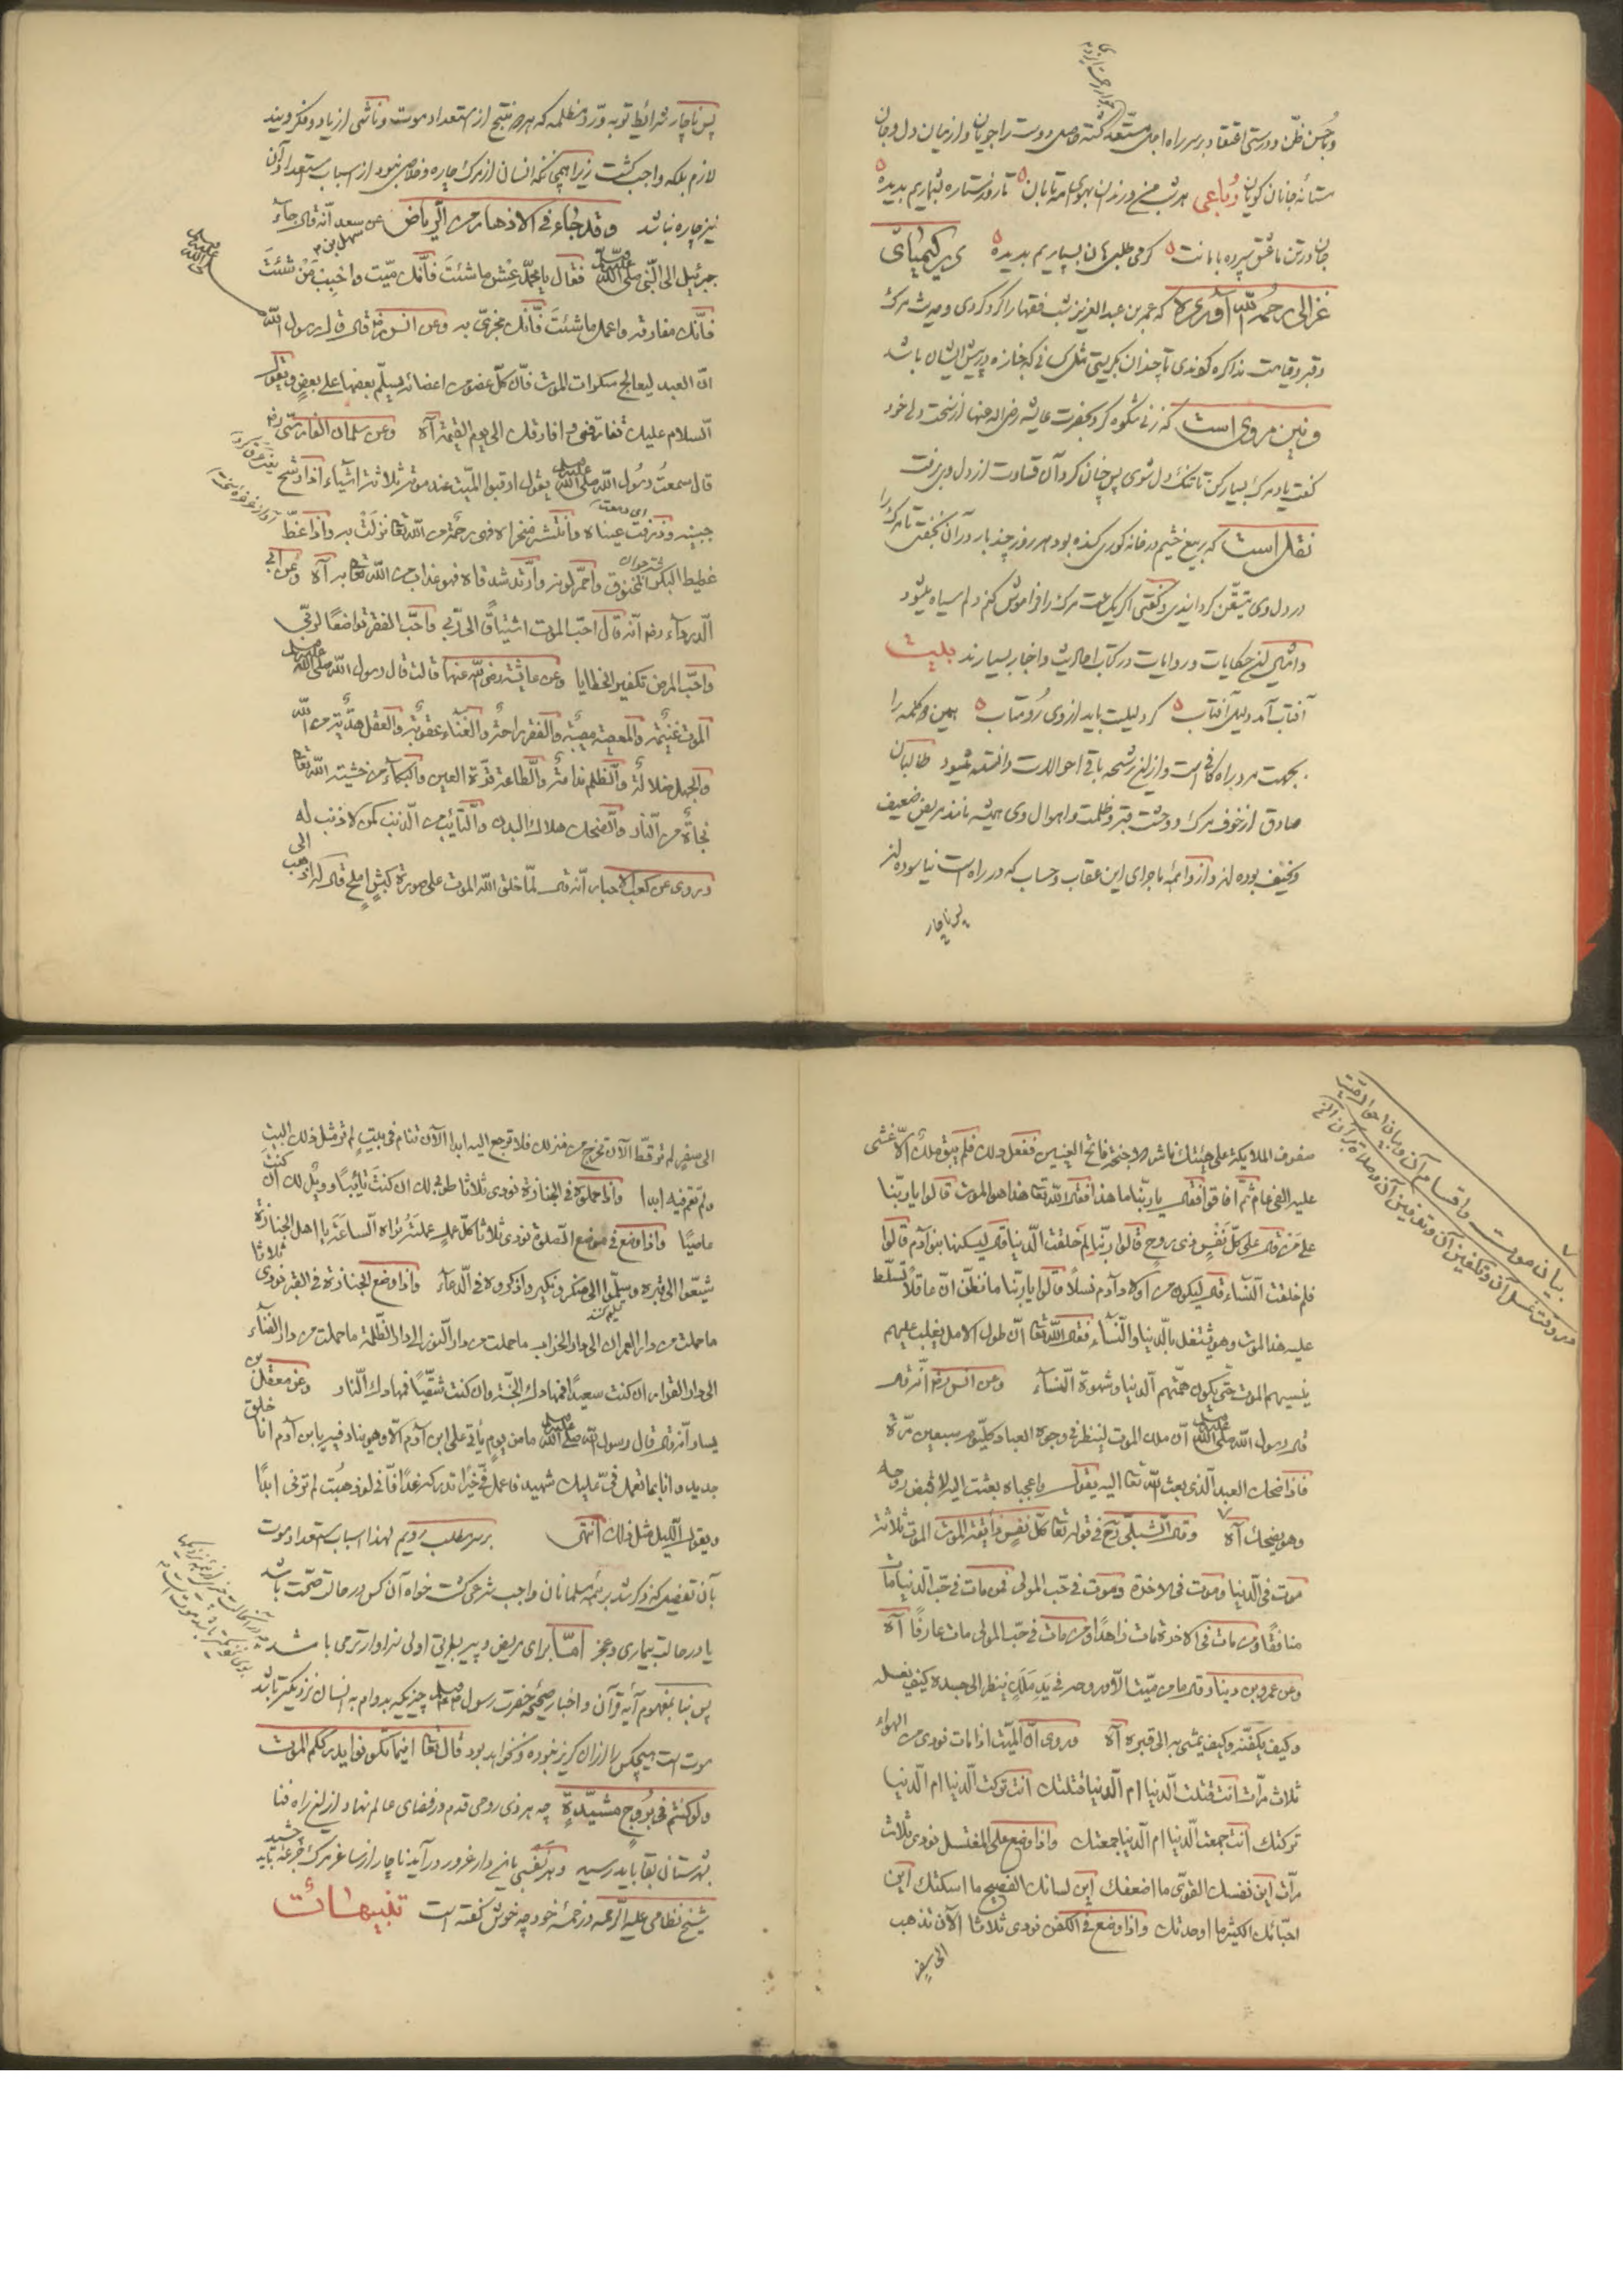 وباحسن ظن ودرستی اعتقاد بر سر راه اجل مستعد کشته وصل دوست را جویان واز میان دل وجان
مستانه جانان کویان رباعی هر شب منم ودرزدن بهوای مه تابان تا روز ستاره شماریم بدیده
جان در تن عاشق سپرده بامانت کر می طلبی جان بسپاریم بدیده در کیمیای
غزالی رحمه الله آورده که عمر بن عبد العزیز شب فقها را کرد کردی وحدیث مرک
وقبر وقیامت مذاکره کردندی تا چندان بکریستی مثل کسانی که جنازه در پیش ایشان باشد
ونیز مروی است که زنی شکوه کرد بحضرت عایشه رضی الله عنها از سختی دل خود
کفت یاد مرک بسیار کن تا تنک دل شوی پس چنان کرد آن قساوت از دل وی برفت
نقل است که ربیع خثیم در خانه کوری کنده بود هر روز چند بار در آن بخفتی تا مرک را
در دل وی متیقن کردانیدی وکفتی اکر یک ساعت مرک را فراموش کنم دلم سیاه میشود
وامثال این حکایات وروایات در کتاب احادیث واخبار بسیارند بیت
آفتاب آمد دلیل آفتاب کر دلیلت باید از وی رو متاب همین دو کلمه را
بجهت مرد براه کافی است واز این رشحه باقی احوالات دانسته میشود طالبان
صادق از خوف مرک ووحشت قبر وظلمت واهوال وی همیشه مانند مریض ضعیف
ونحیف بوده اند واز واهمه ماجرای این عقاب وحساب که در راه است نیاسوده اند
پس ناچار
پس ناچار شرائط توبه ورد مظلمه که هر دو منتج از استعداد موتند وناشی از یاد وفکر ویند
لازم بلکه واجب کشت زیرا همچنانکه انسان از مرک چاره وخلاص نبود از اسباب استعداد آن
نیز چاره نباشد وقد جاء فی الازهار من الریاض عن سعد انه قال جاء
سهل بن
جبرئیل الی النبی صلی الله علیه وسلم فقال یا محمد عش ما شئت فانک میت واحبب من شئت
فانک مفارقه واعمل ما شئت فانک مجزی به وعن انس رضه قال قال رسول الله
صلی الله علیه وسلم
ان العبد لیعالج سکرات الموت فان کل عضو من اعضائه یسلم بعضها علی بعض ویقول
السلام علیک تفارقنی وافارقک الی یوم القیمة آه وعن سلمان الفارسی رضه
قال سمعت رسول الله صلی الله علیه وسلم یقول ارقبوا المیت عند موته ثلاثة اشیاء اذا رشح
جبینه وذرفت عیناه وانتشر منخراه فهی رحمة من الله تعا نزلت به واذا غط
غطیط البکر المخنوق واحمر لونه وازبد شدقاه فهو عذاب من الله تعا به آه وعن ابی
الدرداء رضه انه قال احب الموت اشتیاقا الی ربی واحب الفقر تواضعا لربی
واحب المرض تکفیرا لخطایا وعن عایشة رضی الله عنها قالت قال رسول الله صلی الله علیه وسلم
الموت غنیمة والمعصیة مصیبة والفقر راحة والغناء عقوبة والعقل هدیة من الله
والجهل ضلالة والظلم ندامة والطاعة قرة العین والبکاء من خشیة الله تعا
نجاة من النار والضحک هلاک البدن والتائب من الذنب کمن لا ذنب له
وروی عن کعب الاحبار انه قال لما خلق الله الموت علی صورة کبش املح قال له اذهب
الی
بیان موت واقسام آن وبیان احوال میت
در وقت غسل آن وتکفین آن وتدفین آن وصلاة بر آن الخ
صفوف الملایکة علی هیئتک ناشر الاجنحة فاتح العینین ففعل ذلک فلم یبق ملک الا غشی
علیه الفی عام ثم افاقوا فقال یا ربنا ما هذا فقال الله تعا هذا هو الموت قالوا یا ربنا
علی من قال علی کل نفس ذی روح قالوا ربنا لم خلقت الدنیا قال لیسکنها بنو آدم قالوا
فلم خلقت النساء قال لیکون من اولاد آدم نسلا قالوا یا ربنا ما نظن ان عاقلا تسلط
علیه هذا الموت وهو یشتغل بالدنیا والنساء فقال الله تعا ان طول الامل یغلب علیهم
ینسیهم الموت حتی یکون همتهم الدنیا وشهوة النساء وعن انس رضه انه قال
قال رسول الله صلی الله علیه وسلم ان ملک الموت لینظر فی وجوه العباد کل یوم سبعین مرة
فاذا ضحک العبد الذی بعث الله تعا الیه یقول واعجباه بعثت الیه لاقبض روحه
وهو یضحک آه وقال الشبلی رح فی قوله تعا کل نفس ذائقة الموت الموت ثلاثة
موت فی الدنیا وموت فی الاخرة وموت فی حب المولی فمن مات فی حب الدنیا مات
منافقا ومن مات فی الاخرة مات زاهدا ومن مات فی حب المولی مات عارفا آه
وعن عمرو بن دینار قال ما من میت الا وروحه فی ید ملک ینظر الی جسده کیف یغسله
وکیف یکفنه وکیف یمشی به الی قبره آه وروی ان المیت اذا مات نودی من الهواء
ثلاث مرات انت قتلت الدنیا ام الدنیا قتلتک انت ترکت الدنیا ام الدنیا
ترکتک انت جمعت الدنیا ام الدنیا جمعتک واذا وضع علی المغتسل نودی ثلاث
مرات این نفسک القوی ما اضعفک این لسانک الفصیح ما اسکتک این
احبائک الکثیر ما اوحدتک واذا وضع فی الکفن نودی ثلاثا الآن تذهب
الی سفر
الی سفر لم تر قط الآن تخرج من منزلک فلا ترجع الیه ابدا الآن تنام فی بیت لم تر مثل ذلک البیت
ولم تقم فیه ابدا واذا حملوه فی الجنازة نودی ثلاثا طوبی لک ان کنت تائبا وویل لک ان کنت
عاصیا واذا وضع فی موضع الصلوة نودی ثلاثا کل عمل عملته تراه الساعة یا اهل الجنازة
شیعوا الی قبره وسلموا الی منکر ونکیر واذکروه فی الدعاء واذا وضع الجنازة فی القبر نودی ثلاثا
ما حملت من دار العمران الی دار الخراب ما حملت من دار النور الی دار الظلمة ما حملت من دار الفناء
الی دار القرار ان کنت سعیدا فمهادک الجنة وان کنت شقیا فمهادک النار وعن معقل بن
یسار انه قال قال رسول الله صلی الله علیه وسلم ما من یوم یأتی علی ابن آدم الا وهو ینادی فیه یا بن آدم انا خلق
جدید وانا بما تعمل فی علیک شهید فاعمل فی خیرا تدرکنی غدا فانی لو ذهبت لم ترنی ابدا
ویقول اللیل مثل ذلک انتهی بر سر مطلب رویم لهذا اسباب استعداد موت
بآن تفصیل که ذکر شد بر همه مسلمانان واجب شرعی کشت خواه آن کس در حالت صحت باشد
یا در حالت بیماری وعجز اما برای مریض وپیر بطریق اولی سزاوارتر می باشد
پس بنا بمفهوم آیه قرآن واخبار صحیحه حضرت رسول صلعم چیزیکه بدوام به انسان نزدیکتر باشد
موت است هیچکس را از آن کریز نبوده ونخواهد بود قال تعا اینما تکونوا یدرککم الموت
ولو کنتم فی بروج مشیدة چه هر ذی روحی قدم در فضای عالم نهاد از این راه فنا
بشهرستان بقا باید رسید وهر نفسی پای در دار غرور در آید ناچار از ساغر مرک جرعه باید چشید
شیخ نظامی علیه الرحمه در خمسه خود چه خوش کفته است تنبیهات